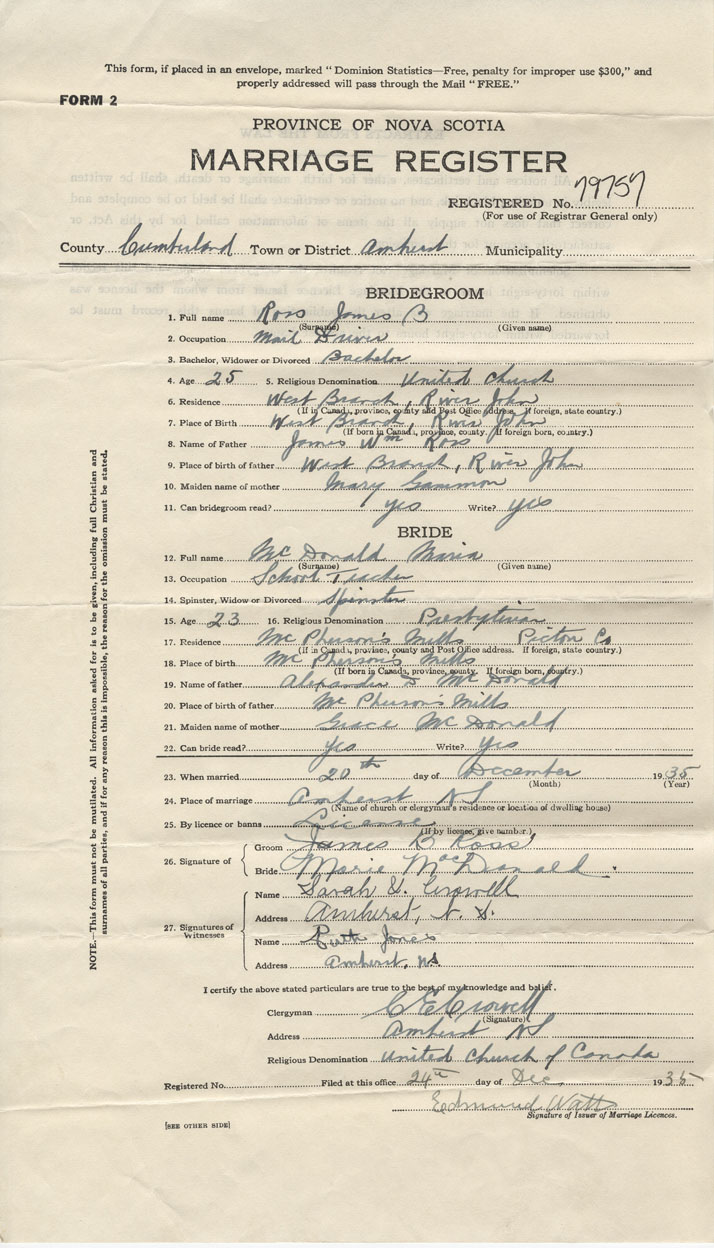 This form, if placed in an envelope, marked "Dominion Statistics—Free, penalty for improper use $300," and
properly addressed will pass through the Mail "FREE."
FORM 2
PROVINCE OF NOVA SCOTIA
MARRIAGE REGISTER
REGISTERED No. 79757
(For use of Registrar General only)
County Cumberland Town or District Amherst Municipality
BRIDEGROOM
1. Full name Ross James B
(Surname) (Given name)
2. Occupation Mail Driver
3. Bachelor, Widower or Divorced Bachelor
4. Age 25 5. Religious Denomination United Church
6. Residence West Branch, River John
(If in Canada, province, county and Post Office address. If foreign, state country.)
7. Place of Birth West Branch, River John
(If born in Canada, province, county. If foreign born, country.)
8. Name of Father James Wm Ross
9. Place of birth of father West Branch, River John
10. Maiden name of mother Mary Gammon
11. Can bridegroom read? yes Write? yes
BRIDE
12. Full name McDonald Maria
(Surname) (Given name)
13. Occupation School Teacher
14. Spinster, Widow or Divorced Spinster
15. Age 23 16. Religious Denomination Presbyterian
17. Residence McPherson's Mills Pictou Co
(If in Canada, province, county and Post Office address. If foreign, state country.)
18. Place of birth McPherson's Mills
(If born in Canada, province, county. If foreign born, country.)
19. Name of father Alexander D McDonald
20. Place of birth of father McPherson's Mills
21. Maiden name of mother Grace McDonald
22. Can bride read? yes Write? yes
23. When married 20th day of December 1935
(Month) (Year)
24. Place of marriage Amherst NS
(Name of church or clergyman's residence or location of dwelling house)
25. By licence or banns License
(If by licence, give number.)
26. Signature of
Groom James B Ross
Bride Marie MacDonald
27. Signatures of Witnesses
Name Sarah L. Crowell
Address Amherst, N. S.
Name Ruth Jones
Address Amherst, NS
I certify the above stated particulars are true to the best of my knowledge and belief.
Clergyman C E Crowell
(Signature)
Address Amherst NS
Religious Denomination United Church of Canada
Registered No. Filed at this office 24th day of Dec 1935
Edmund Watts
Signature of Issuer of Marriage Licences.
[SEE OTHER SIDE]
NOTE.—This form must not be mutilated. All information asked for is to be given, including full Christian and
surnames of all parties, and if for any reason this is impossible, the reason for the omission must be stated.